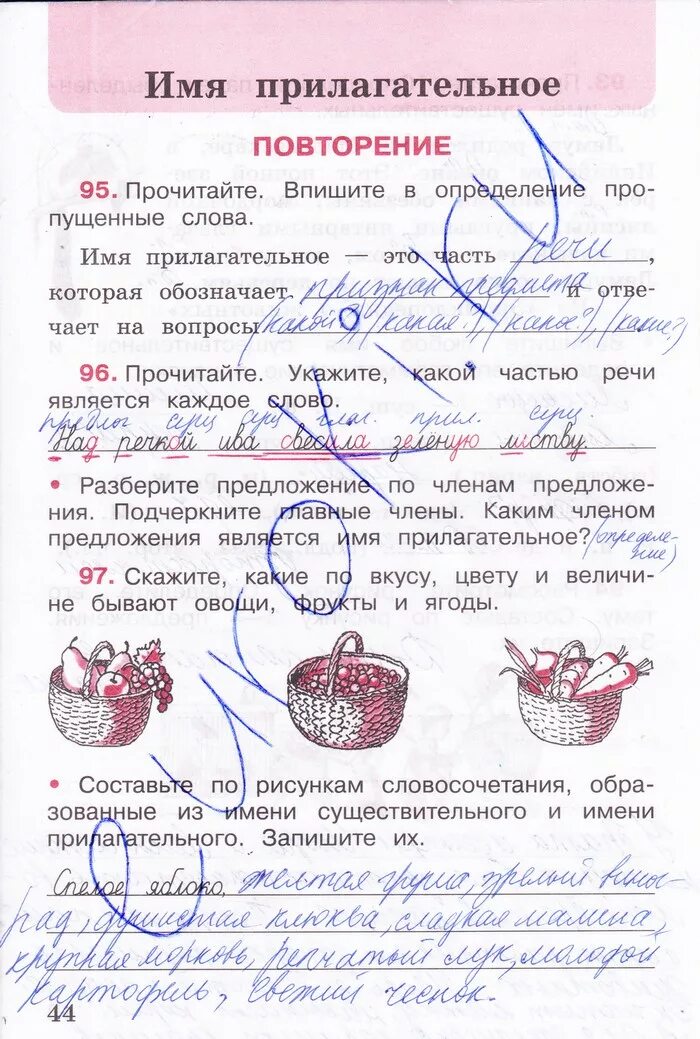 Имя прилагательное
ПОВТОРЕНИЕ
95. Прочитайте. Впишите в определение про-
пущенные слова.
Имя прилагательное — это часть речи,
которая обозначает признак предмета и отве-
чает на вопросы (какой?) (какая?), (какое?), (какие?)
96. Прочитайте. Укажите, какой частью речи
является каждое слово.
предлог сущ сущ глаг. прил. сущ.
Над речкой ива свесила зелёную листву.
• Разберите предложение по членам предложе-
ния. Подчеркните главные члены. Каким членом
предложения является имя прилагательное? (определе-
ние)
97. Скажите, какие по вкусу, цвету и величи-
не бывают овощи, фрукты и ягоды.
• Составьте по рисункам словосочетания, обра-
зованные из имени существительного и имени
прилагательного. Запишите их.
Спелое яблоко, желтая груша, зрелый виног-
рад, душистая клюква, сладкая малина,
крупная морковь, репчатый лук, молодой
картофель, свежий чеснок.
44